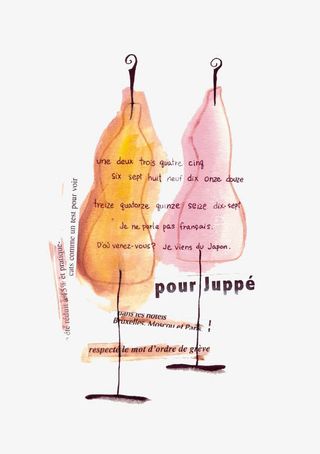 une deux trois quatre cinq
six sept huit neuf dix onze douze
treize quatorze quinze seize dix-sept
Je ne parle pas français.
D'où venez-vous? Je viens du Japon.
pour Juppé
dans les hôtels
Bruxelles, Moscou et Paris !
respecte le mot d'ordre de grève
cats comme un test pour voir
réduit à 45% et pratique-